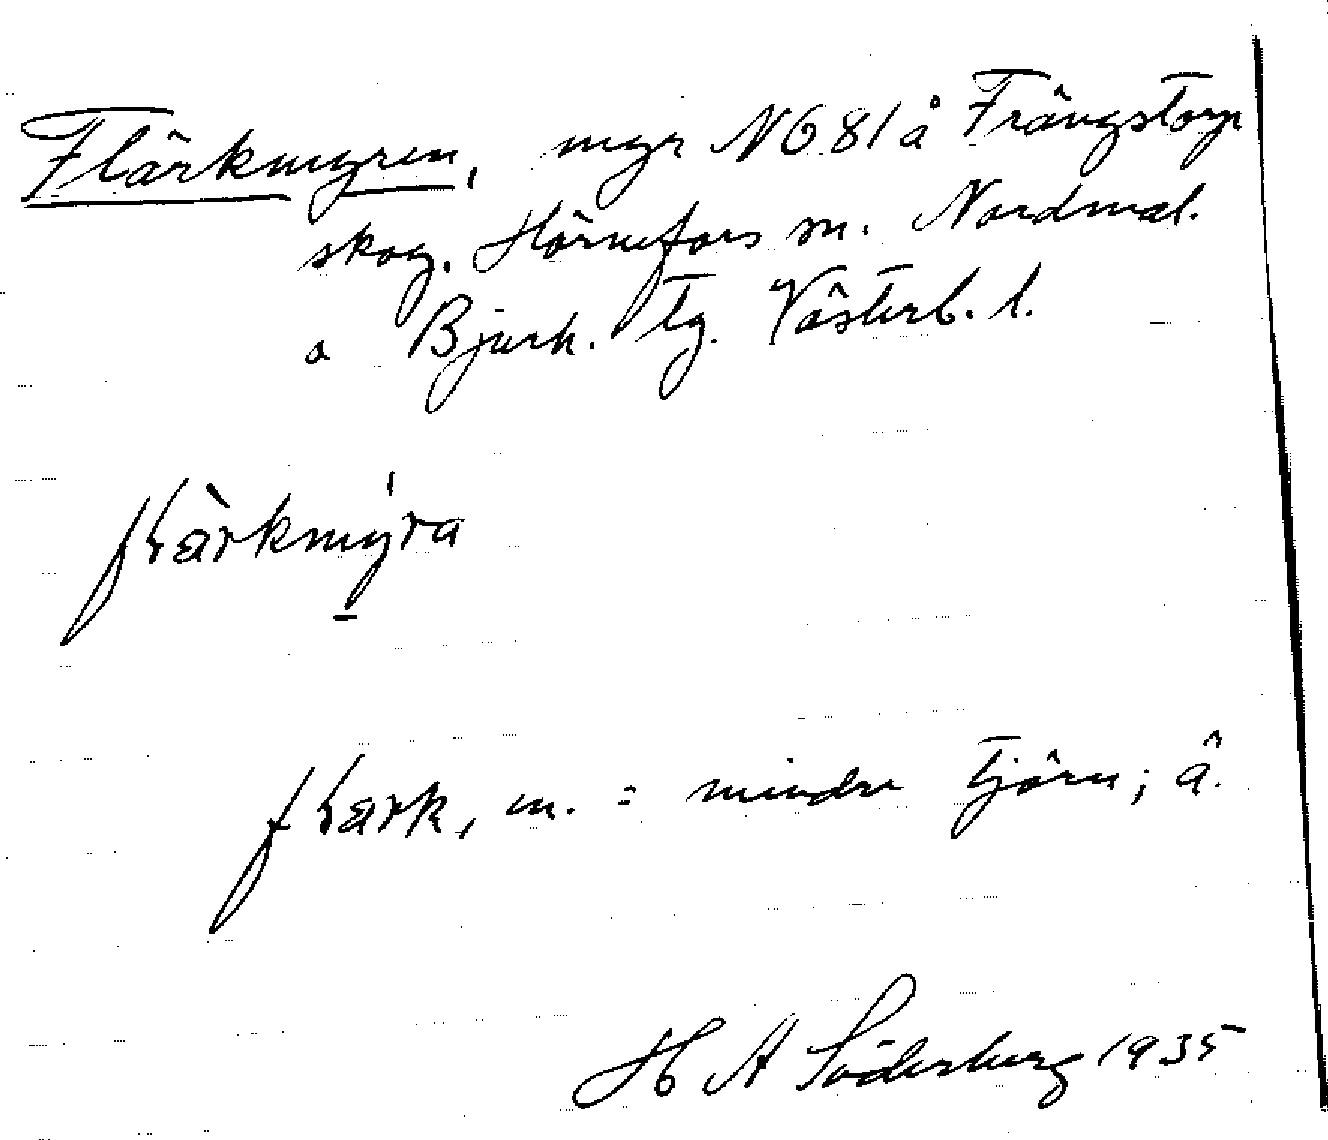 Flärkmyren, myr N 6 81 å Frängstorp
skog. Hörnefors sn. Nordmal.
o Bjurh. tg. Västerb. l.
flärkmyra
flark, m. = mindre tjärn; å.
H A Söderberg 1935